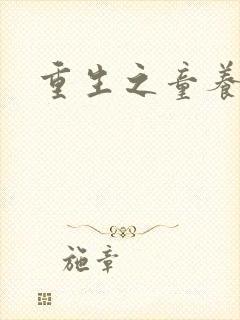 重生之童养
施章